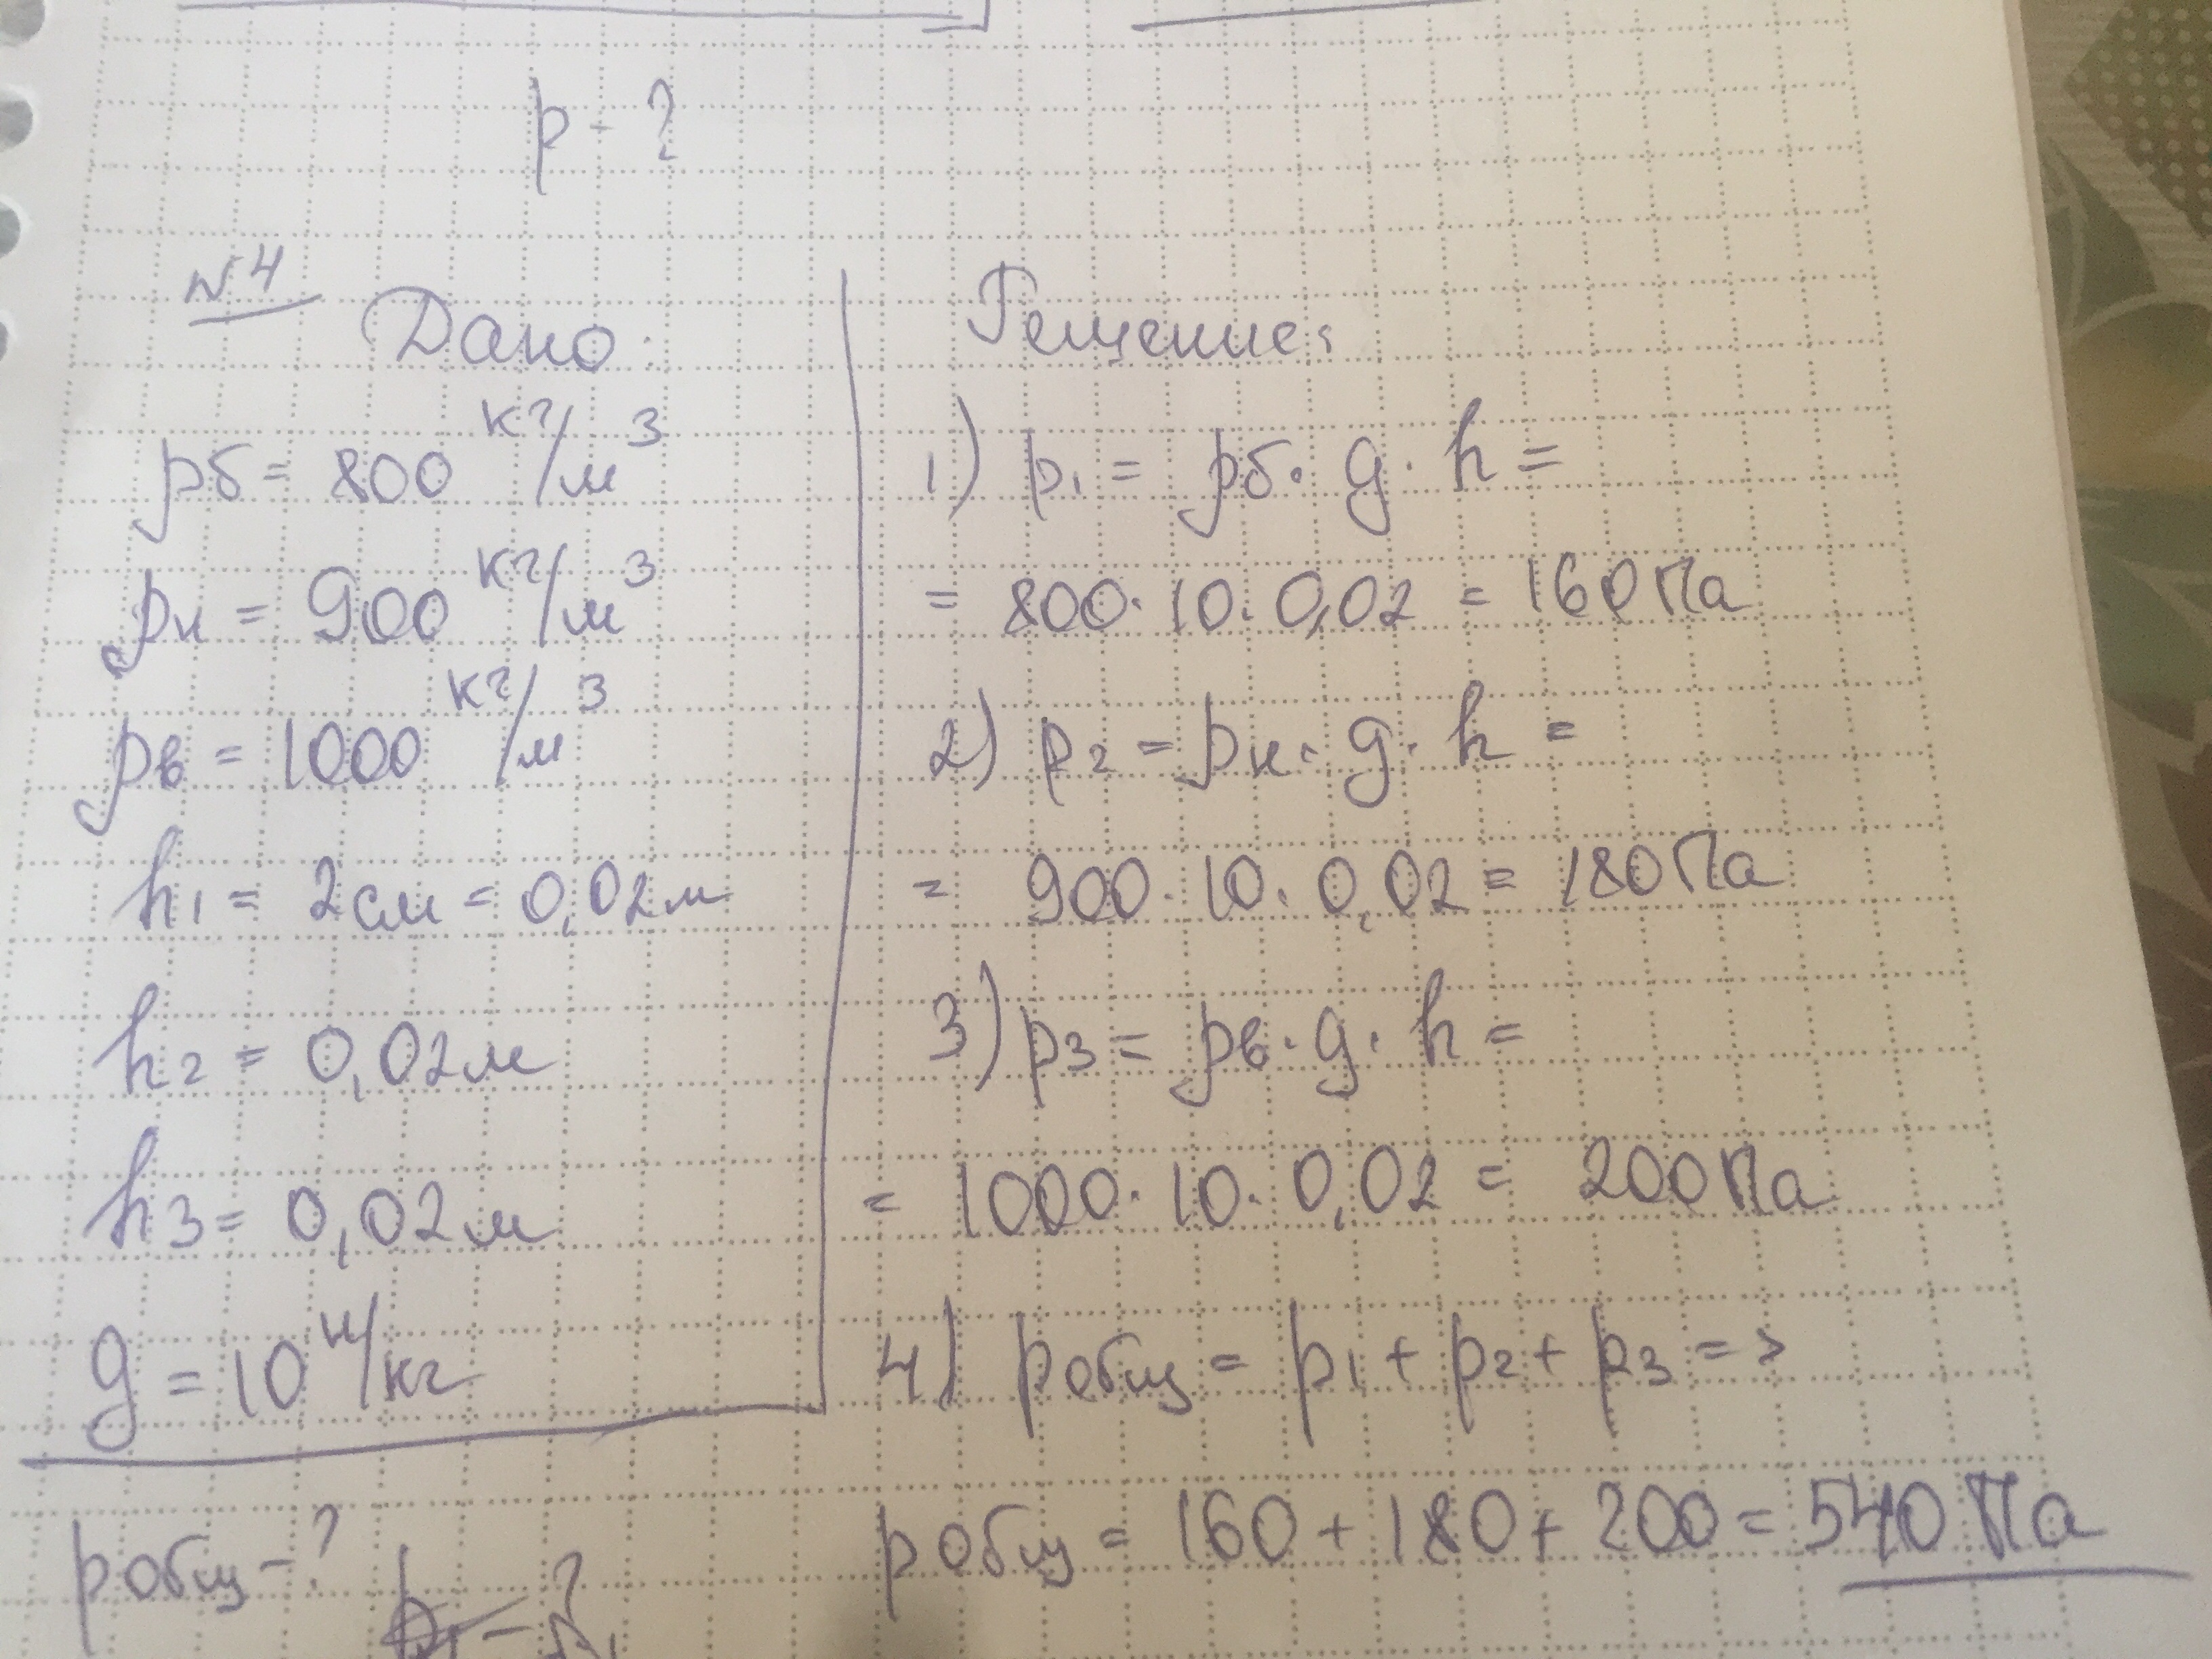 p - ?
№4
Дано:
ρб = 800 кг/м³
ρн = 900 кг/м³
ρв = 1000 кг/м³
h1 = 2см = 0,02м
h2 = 0,02м
h3 = 0,02м
g = 10 Н/кг
p общ - ?
Решение:
1) p1 = ρб · g · h =
= 800 · 10 · 0,02 = 160 Па
2) p2 = ρн · g · h =
= 900 · 10 · 0,02 = 180 Па
3) p3 = ρв · g · h =
= 1000 · 10 · 0,02 = 200 Па
4) p общ = p1 + p2 + p3 =>
p общ = 160 + 180 + 200 = 540 Па